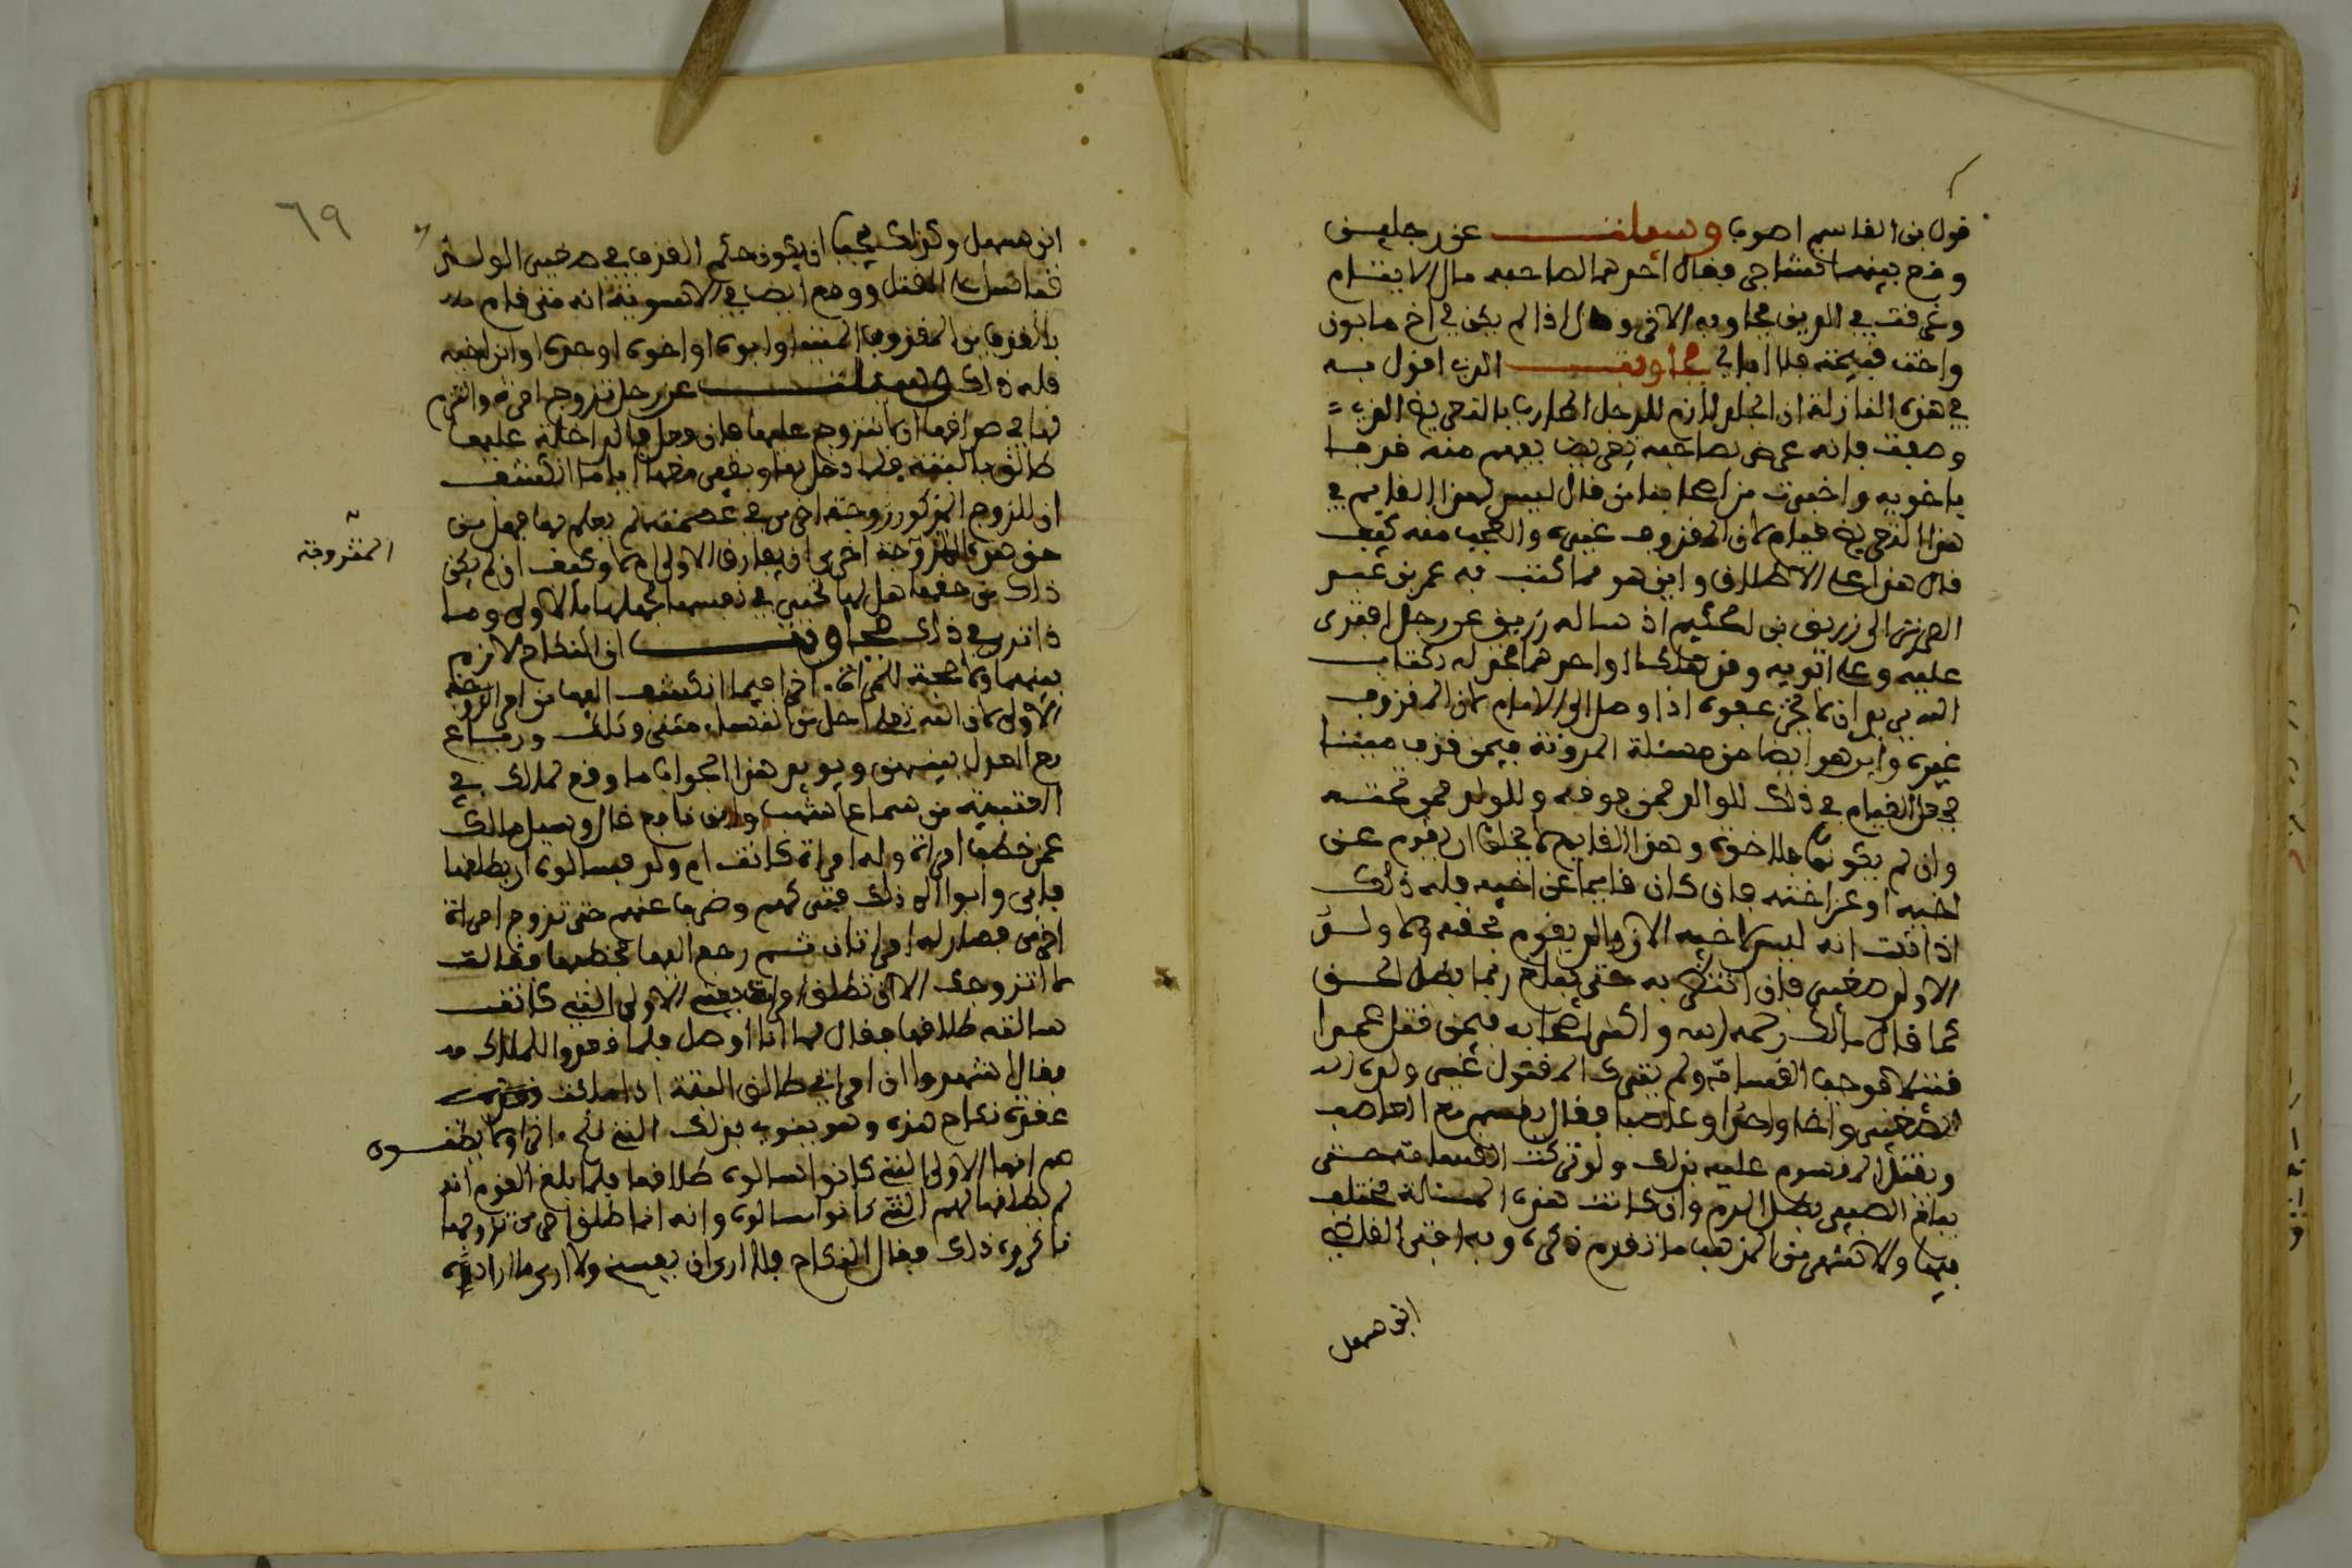 قول بن القاسم اصوب وسيلت عن رجلين
وقع بينهما تشاجر فقال احدهما لصاحبه مال الابتسام
وغرقت في الريف فجاوبه الاخر وقال اذا لم يكن في اخ مابون
واخت قبيحة فلا ابالي فجاوبت الذي اقول به
في هذه النازلة ان الحد لازم للرجل الحارب بالتعريض الذي
وصفت فانه عرض بصاحبه تعريضا يفهم منه قذفا
باخويه واخبرت من اصحابنا من قال ليس لهذا القايم في
هذا التعريض قيام لان المقذوف غيره والعجب منه كيف
قال هذا على الاطلاق واين هو مما كتب به عمر بن عبد
العزيز الى زريق بن حكيم اذ ساله زريق عن رجل افترى
عليه وعلى ابويه وقد هلكا او احدهما فخذ له بكتاب
الله يريد ان لا يجوز عفوه اذا وصل الى الامام لان المقذوف
غيره واين هو ايضا من مسئلة المدونة فيمن قذف ميتا
في حق القيام في ذلك للوالد فمن فوقه وللولد فمن تحته
وان لم يكونوا فللاخوة وهذا القايم لا يخلوا ان يقوم عن
اخيه او عن اخته فان كان قايما عن اخيه فله ذلك
اذا ثبت انه ليس لاخيه الان والد يقوم بحقه ولا ولد
الا ولد صغير فان انتظر به حتى يبلغ ربما بطل الحق
كما قال مالك رحمه الله واكثر اصحابه فيمن قتل عمدا
قتلا توجب القسامة ولم يترك المقتول غير ولده
الصغير واخا واحدا وعاصبا فقال يقسم مع العاصب
ويقتل المقسوم عليه بذلك ولو تركت القسامة حتى
يبلغ الصبي بطل الدم وان كانت هذه المسالة مختلف
فيها والاشهر من المذهب ما تقدم ذكره وبه افتى القاضي
ابن سهل
٦٩
ابن سهل وكذلك يجب ان يكون حكم القذف في صغير الولد
قياسا على القتل ووقع ايضا في الاسدية انه متى قام
بالقذف من المقذوف الميت او ابوه او اخوه او جده او ابن اخيه
فله ذلك وسيلت عن رجل تزوج امرأة والتزم
لها في صداقها ان لا يتزوج عليها فان فعل فالداخلة عليها
طالق بالبتة فلما دخل بها وبقي معها اياما انكشف
ان للزوج المذكور زوجة اخرى في عصمته لم يعلم بها فهل من
حق هذه الزوجة اخرى ان يفارق الاولى ام لا وكيف ان لم يكن
المتزوجة
ذلك من حقها هل لها تخير في نفسها لجهلها بالاولى وما
ذا ترى في ذلك فجاوبت ان النكاح لازم
بينهما ولا حجة للمرأة اخرا فيما انكشف اليها من امر الزوجة
الاولى لان الله تعلى احل من النساء مثنى وثلث ورباع
مع العدل بينهن ويويد هذا الجواب ما وقع لمالك في
العتبية من سماع اشهب وابن نافع قال وسيل مالك
عمن خطب امرأة وله امرأة كانت ام ولد فسالوه ان يطلقها
فابى وابوا الا ذلك فتركهم وضرب عنهم حتى تزوج امرأة
اخرى فصار له امراتان ثم رجع اليها يخطبها فقالت
لا اتزوجك الا ان تطلق امراتك الاولى التي كانت
سالته طلاقها فقال لها انا افعل فلما قعدوا للملاك
فقال اشهدوا ان امراتي طالق البتة اذا ملكت
عقدة نكاح هذه وهو ينوي بذلك التي نكح اخرا ولا يظنون
هم انها الاولى التي كانوا سالوه طلاقها فلما بلغ القوم انه
لم يطلقها لهم التي كانوا سالوه وانه انما طلق اخرى تزوجها
ناكروه ذلك فقال النكاح فلا ارى ان يفسخ ولا ارى ما اراد